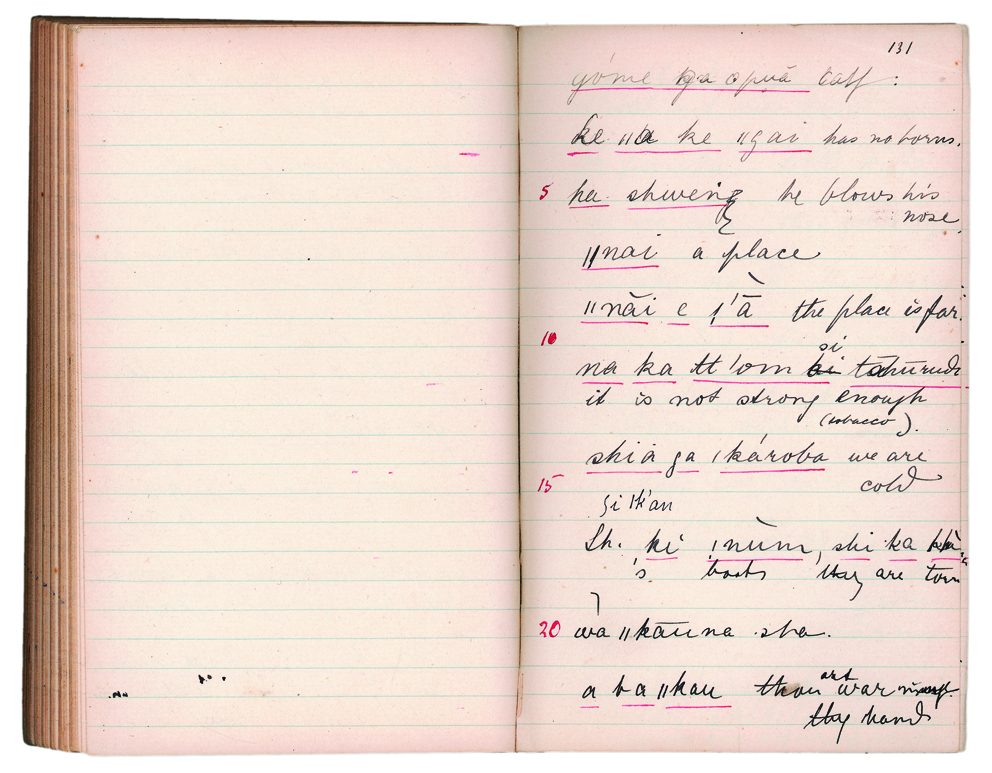 131
yóme ga opuā calf.
ke ǁa ke ǁgai has no horns.
5 ha shweng he blows his
nose.
ǁnai a place
ǁnāi e ǀ'ā the place is far.
10
si
na ka tt'om tāhūrudi
it is not strong enough
(tobacco).
shiá ga ǀkároba we are
15 cold
Sh. ki ǃnùm, shi ka
's boots they are torn
20 wa ǁkāuna sha.
art
a ba ǁkau thou warming
thy hand